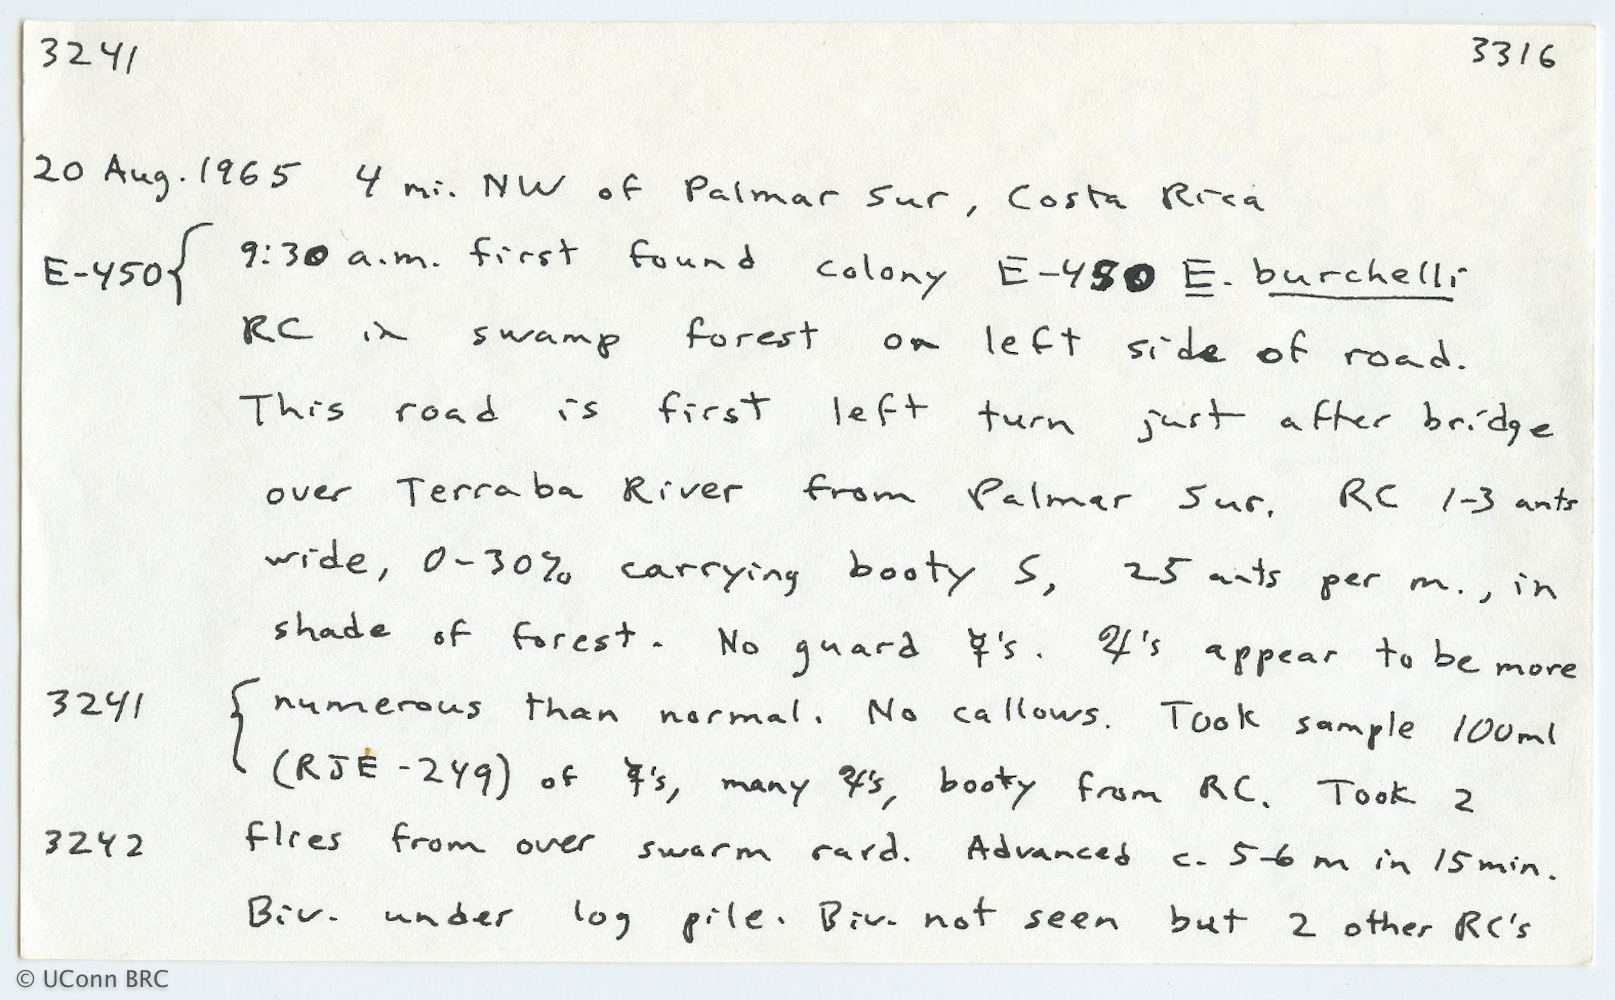 3241 3316
20 Aug. 1965 4 mi. NW of Palmar Sur, Costa Rica
E-450 { 9:30 a.m. first found colony E-450 E. burchelli
RC in swamp forest on left side of road.
This road is first left turn just after bridge
over Terraba River from Palmar Sur. RC 1-3 ants
wide, 0-30% carrying booty S, 25 ants per m., in
shade of forest. No guard ☿'s. ♃'s appear to be more
3241 { numerous than normal. No callows. Took sample 100ml
(RJE-249) of ☿'s, many ♃'s, booty from RC. Took 2
3242 flies from over swarm raid. Advanced c. 5-6 m in 15 min.
Biv. under log pile. Biv. not seen but 2 other RC's
© UConn BRC